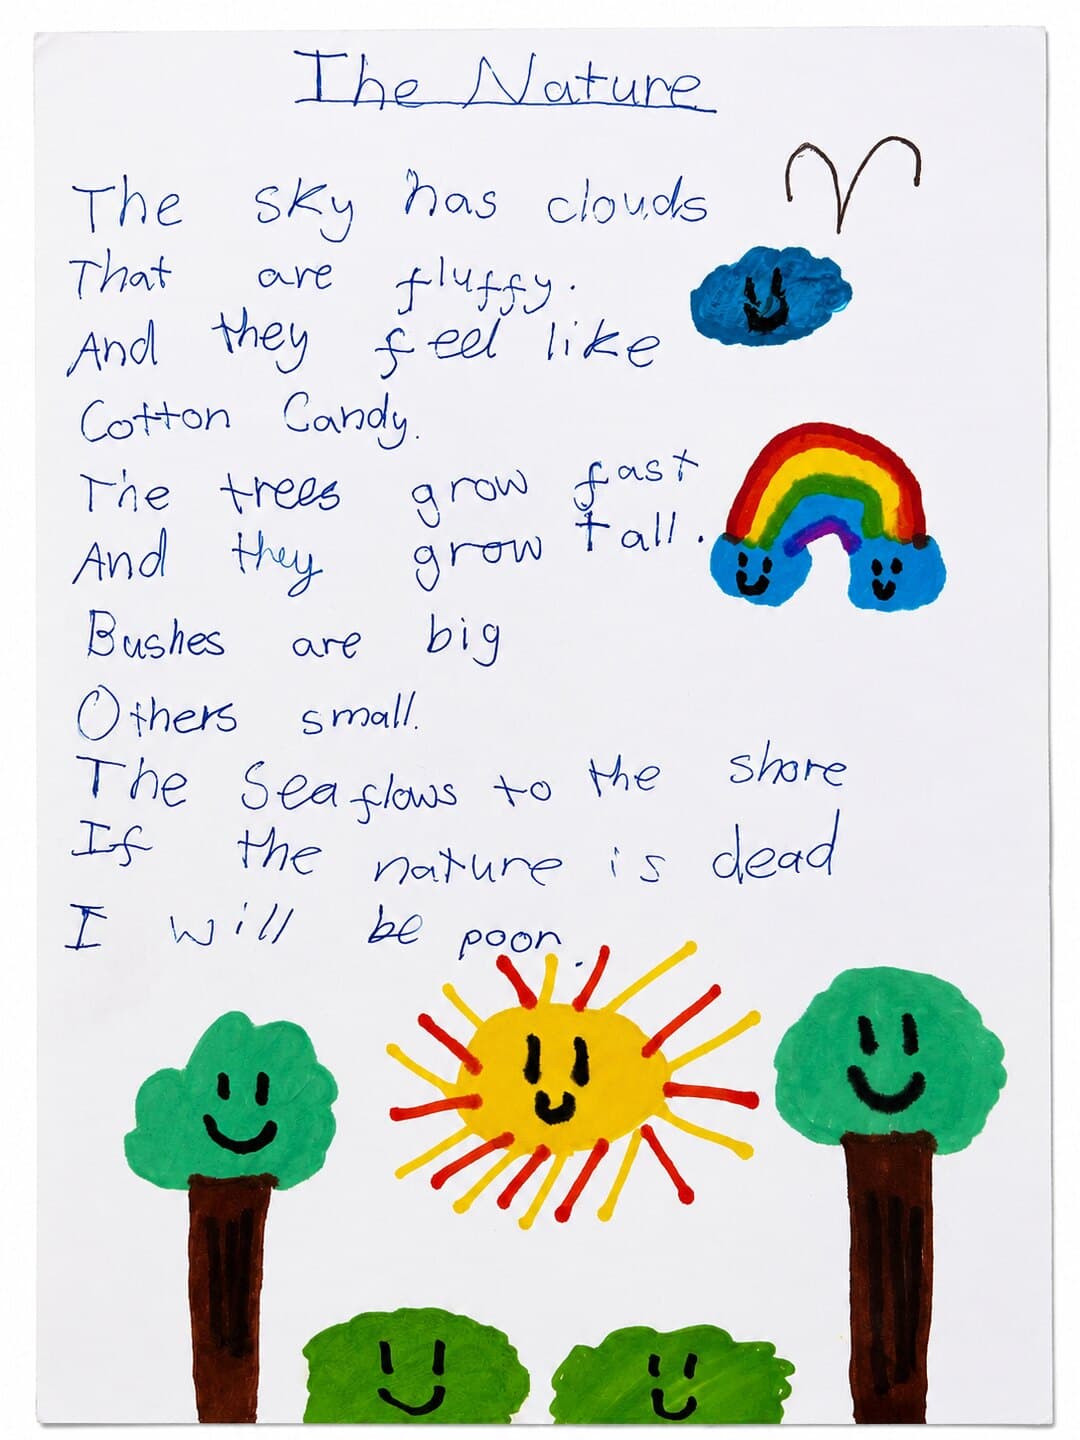 The Nature
The sky has clouds
That are fluffy.
And they feel like
Cotton Candy.
The trees grow fast
And they grow tall.
Bushes are big
Others small.
The Sea flows to the shore
If the nature is dead
I will be poor.